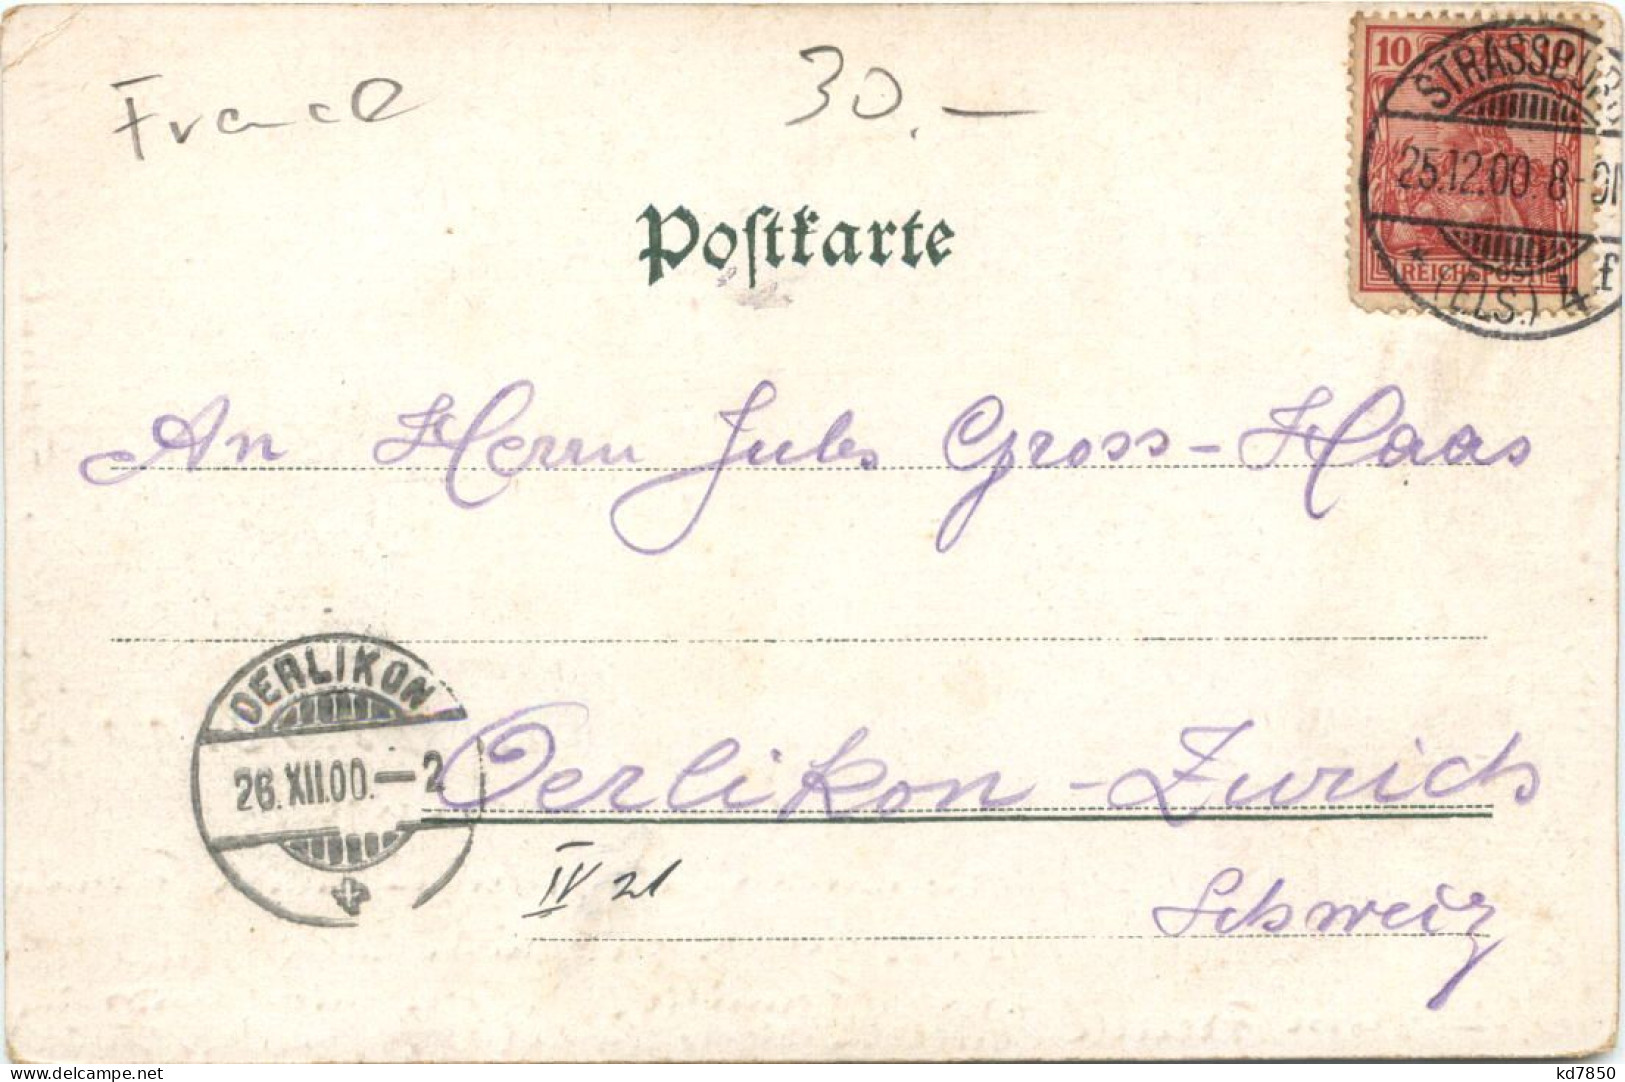 France 30.—
10 10
STRASSBURG
25.12.00. 8-9N
REICHSPOST
(ELS.) 4 f
Postkarte
An Herrn Jules Gross-Haas
OERLIKON
26.XII.00.—2
Oerlikon-Zurich
IV 21
Schweiz
www.delcampe.net
kd7850